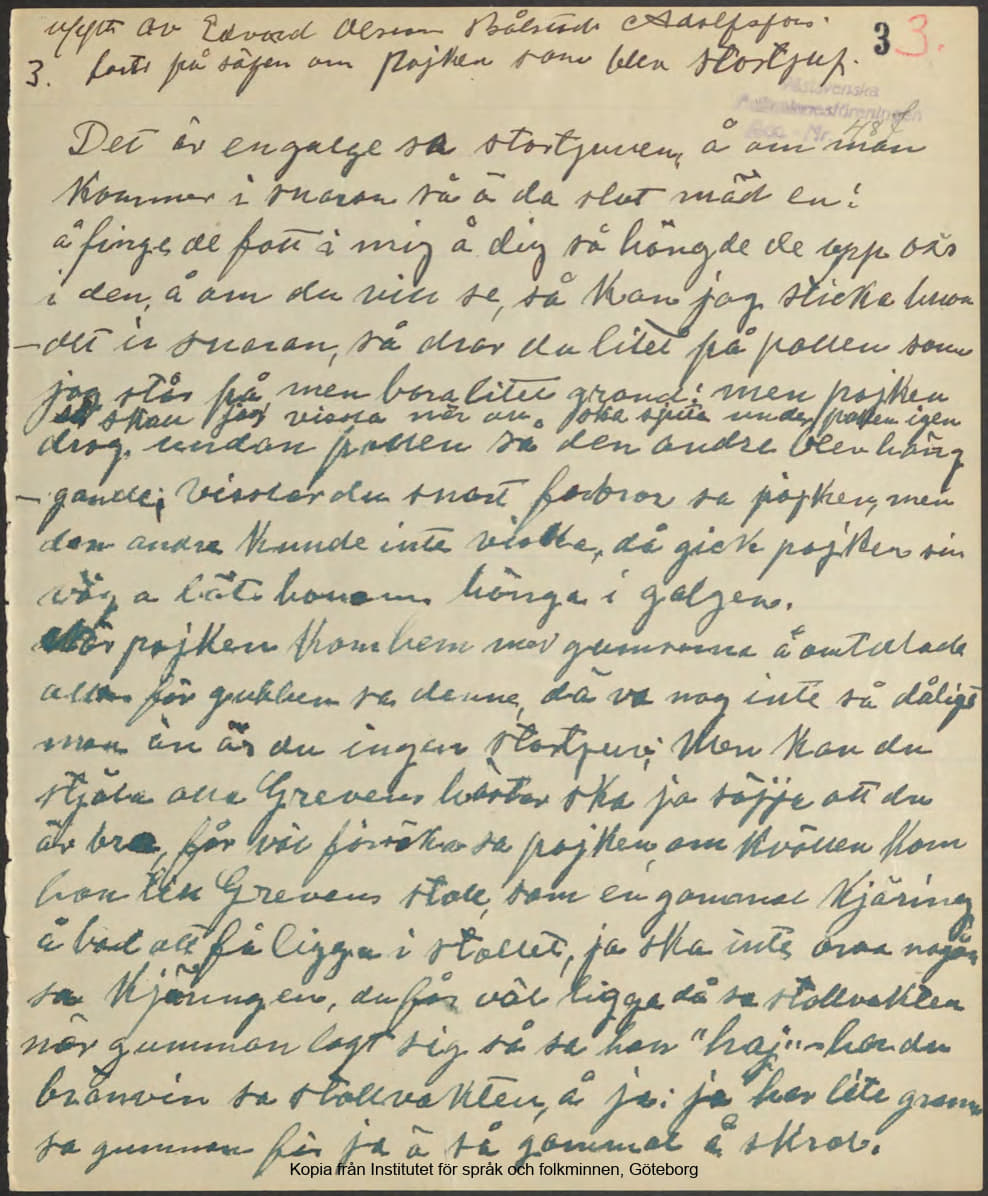 av Edvard Olsson Adolfsfors.
3. forts på sägen om pojken som blev stortjuf.
3 3.
Västsvenska
Folkminnesföreningen
Acc. Nr. 484
Det är en galge sa stortjuven, å om man
kommer i snaran så ä da slut mäd en!
å finge de fatt i mig å dig så hängde de upp oss
i den, å om du vill se, så kan jag sticka huvu
-det i snaran, så drar du litet på pallen som
jag står på men bara litet grand; men pojken
skall jag vissla när du ska sjuta under pallen igen
drog undan pallen så den andre blev häng
-gande; visslar du snart farbror sa pojken, men
den andra kunde inte vissla, då gick pojken sin
väg å lät honom hänga i galgen.
När pojken kom hem me å omtalade
allt för gubben sa denne, dä va nog inte så dåligt
men än är du ingen stortjuv; Men kan du
stjäla alla Grevens hästar ska ja säjja att du
är bra, får väl försöka sa pojken, om kvällen kom
han till Grevens stall, som en gammal kjäring
å bad att få ligga i stallet, ja ska inte
sa kjäringen, du får väl ligga då sa stallvakten
när gumman lagt sig så sa hon "haj" - har du
bränvin sa stallvakten, å ja: ja har lite grann
sa gumman för ja ä så gammal å skral.
Kopia från Institutet för språk och folkminnen, Göteborg